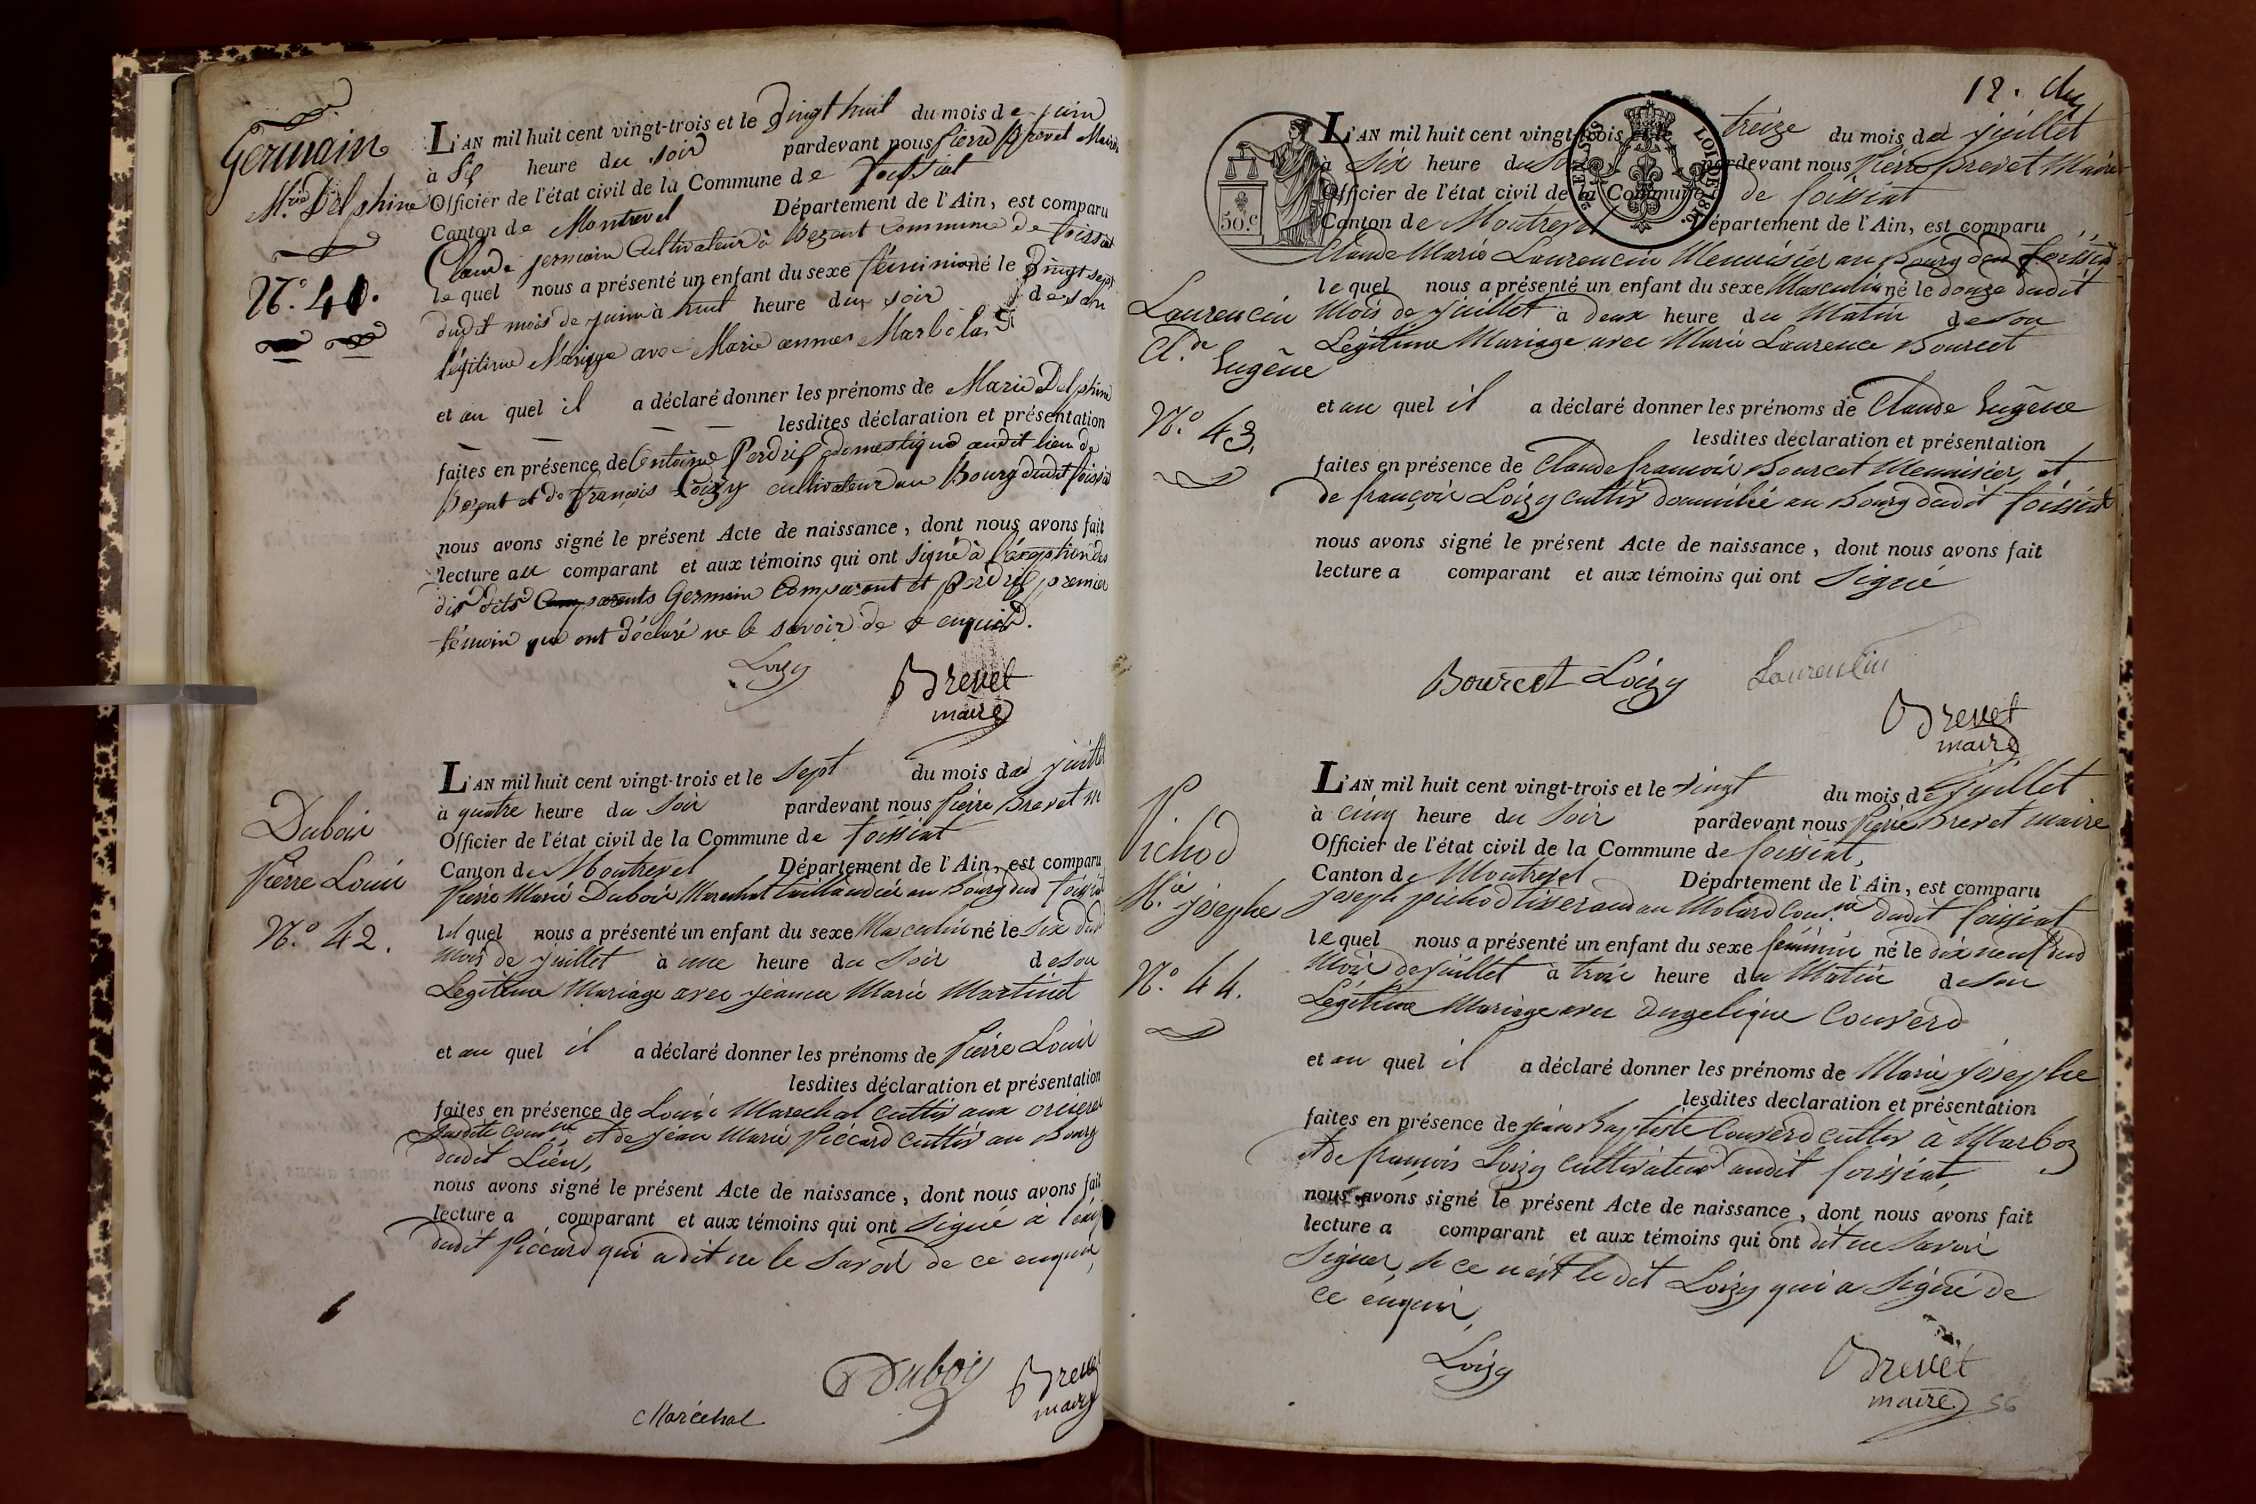 Germain
M.rie Delphine
N.o 41.
L'AN mil huit cent vingt-trois et le Vingt huit du mois de juin
à Six heure du soir pardevant nous pierre Brevet Maire
Officier de l'état civil de la Commune de foissiat
Canton de Montrevel Département de l'Ain, est comparu
Claude germain Cultivateur à Bezent commune de foissiat
le quel nous a présenté un enfant du sexe féminin né le Vingt sept
dudit mois de juin à huit heure du soir de son
légitime Mariage avec Marie anne
et au quel il a déclaré donner les prénoms de Marie Delphine
lesdites déclaration et présentation
faites en présence de Antoine Perdrix domestique audit lieu de
Bezent et de françois Loizy cultivateur au Bourg dudit foissiat
nous avons signé le présent Acte de naissance, dont nous avons fait
lecture au comparant et aux témoins qui ont signé à l'exeption des
dits Comparents Germain Comparent et perdrix premier
témoin qui ont déclaré ne le savoir de ce enquis.
Loizy Brevet
maire
Dubois
Pierre Louis
N.o 42.
L'AN mil huit cent vingt-trois et le sept du mois de juillet
à quatre heure du Soir pardevant nous Pierre Brevet m
Officier de l'état civil de la Commune de foissiat
Canton de Montrevel Département de l'Ain, est comparu
Pierre Marie Dubois Marechal taillandier au Bourg dud foissiat
lequel nous a présenté un enfant du sexe Masculin né le Six dud
mois de juillet à une heure du Soir de son
Légitime Mariage avec jeanne Marie Martinet
et au quel il a déclaré donner les prénoms de Pierre Louis
lesdites déclaration et présentation
faites en présence de Louis Marechal culttr aux
Susdite Comne et de jean Marie Piccard culttr au Bourg
dudit Lieu,
nous avons signé le présent Acte de naissance, dont nous avons fait
lecture a comparant et aux témoins qui ont signé à l'exp
dudit Piccard qui a dit ne le Savoir de ce enquis,
Duboy Brevet
maire
Maréchal
12.
50.c
LOI DE 1816.
L'AN mil huit cent vingt-trois et le treize du mois de juillet
à Six heure du Soir pardevant nous Pierre Brevet Maire
Officier de l'état civil de la Commune de foissiat
Canton de Montrevel Département de l'Ain, est comparu
Claude Marie Laurencin Menuisier au Bourg dud foissiat
Laurencin
Cl.de Eugêne
N.o 43.
le quel nous a présenté un enfant du sexe Masculin né le douze dudit
Mois de juillet à deux heure du Matin de son
Légitime Mariage avec Marie Laurence Bourcet
et au quel il a déclaré donner les prénoms de Claude Eugêne
lesdites déclaration et présentation
faites en présence de Claude francois Bourcet Menuisier, et
de françois Loizy culttr domicilié au Bourg dudit foissiat
nous avons signé le présent Acte de naissance, dont nous avons fait
lecture a comparant et aux témoins qui ont Signé
Bourcet Loizy Laurencin
Brevet
maire
Pichod
M.ie josephe
N.o 44.
L'AN mil huit cent vingt-trois et le vingt du mois de juillet
à cinq heure du Soir pardevant nous Pierre Brevet maire
Officier de l'état civil de la Commune de foissiat,
Canton de Montrevel Département de l'Ain, est comparu
joseph pichod tisserand au Molard Comne dudit foissiat
lequel nous a présenté un enfant du sexe féminin né le dix neuf dud
Mois de juillet à trois heure du Matin de son
Légitime Mariage avec Angelique Couverd
et au quel il a déclaré donner les prénoms de Marie josephe
lesdites déclaration et présentation
faites en présence de jean Baptiste Couverd culttr à Marboz
et de françois Loizy cultivateur audit foissiat,
nous avons signé le présent Acte de naissance, dont nous avons fait
lecture a comparant et aux témoins qui ont dit ne savoir
Signer, Si ce n'est le dit Loizy qui a Signé de
ce enquis,
Loizy Brevet
maire
56